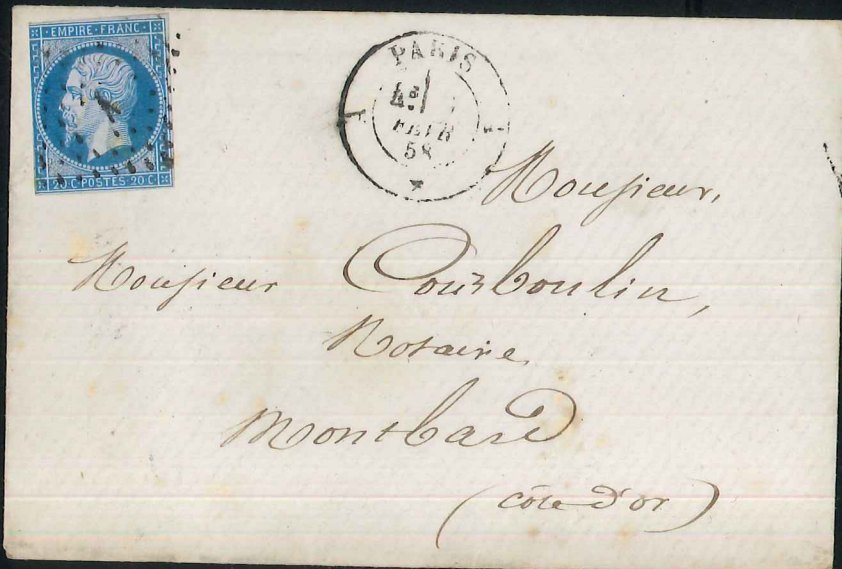 EMPIRE FRANC
20 C·POSTES·20 C
PARIS
FEVR
58
Monsieur,
Monsieur Courboulin,
Notaire
Montbard
(côte d'or)